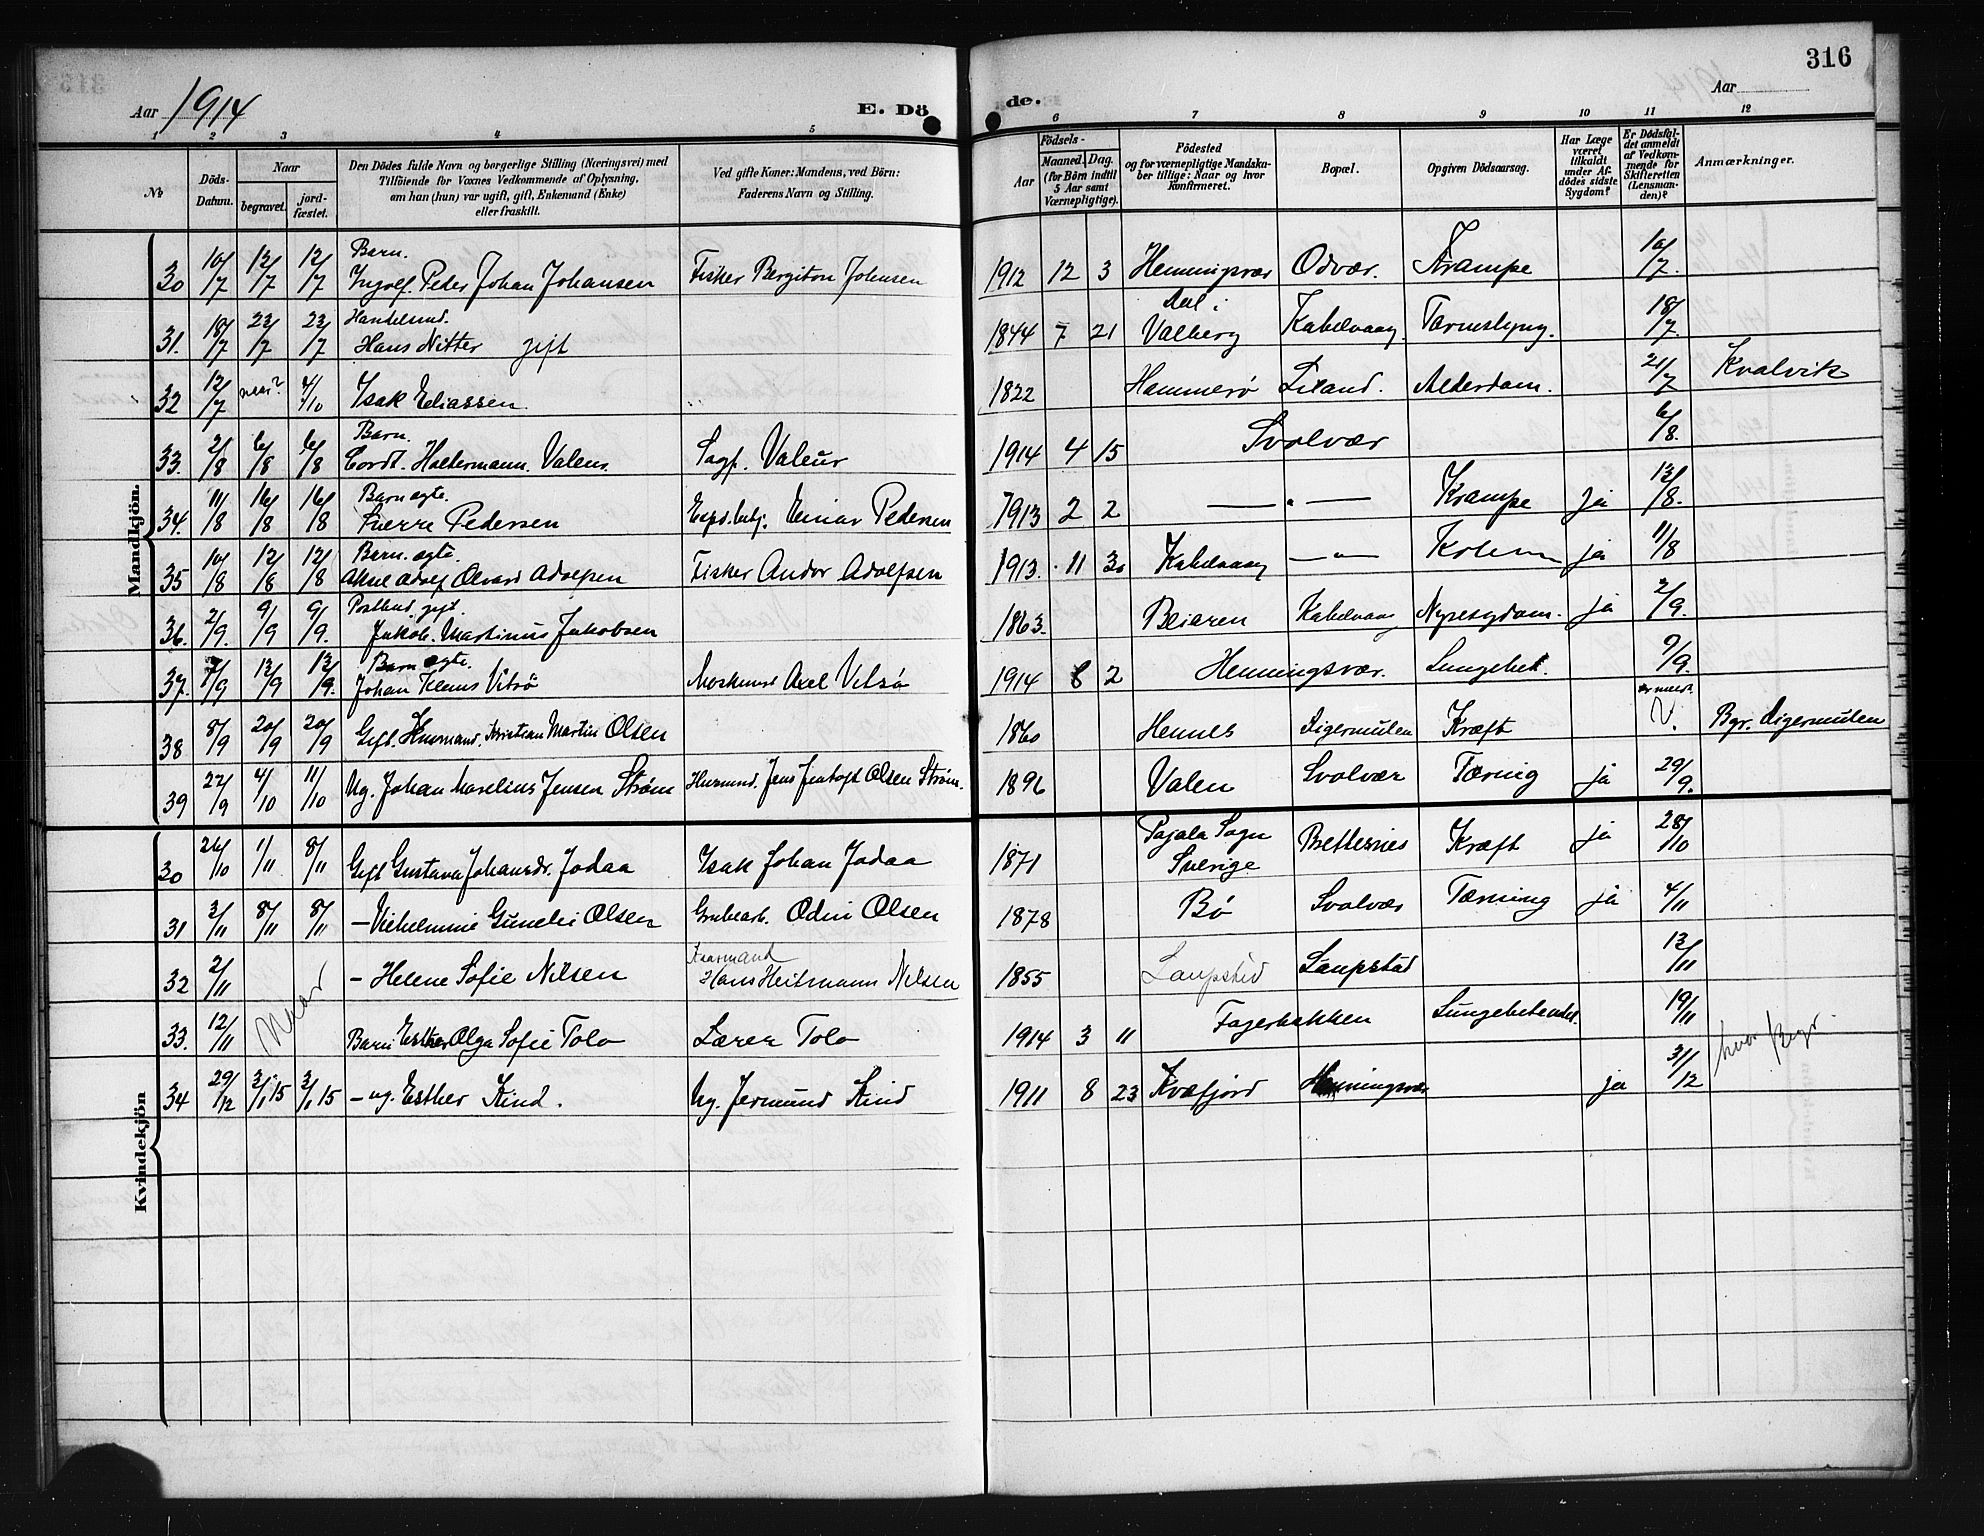 316
Aar 1914
E. Dö
de.
Aar
1 2 3 4 5 6 7 8 9 10 11 12
No
Döds-Datum.
Naar
begravet.
jord-fæstet.
Den Dödes fulde Navn og borgerlige Stilling (Næringsvei) med Tilföiende for Voxnes Vedkommende af Oplysning, om han (hun) var ugift, gift, Enkemand (Enke) eller fraskilt.
Ved gifte Koner: Mandens, ved Börn: Faderens Navn og Stilling.
Födsels-
Aar
Maaned. Dag.
(for Börn indtil 5 Aar samt Værnepligtige).
Födested og for værnepligtige Mandskaber tillige: Naar og hvor konfirmeret.
Bopæl.
Opgiven Dödsaarsag.
Har Læge været tilkaldt under Afdödes sidste Sygdom?
Er Dödsfaldet anmeldt af Vedkommende for Skifteretten (Lensmanden)?
Anmærkninger.
Mandkjön.
30 10/7 12/7 12/7 Barn. Ingolf Peder Johan Johansen Fisker Bergiton Johnsen 1912 12 3 Henningsvær Odvær. Krampe 10/7
31. 18/7 23/7 23/7 Handelsmd. Hans Nitter gift 1844 7 21 Valberg Kabelvaag 18/7.
32 12/7 naar? 4/10 Isak Eliassen 1822 Hammerø Alderdom. 21/7 Kvalvik
33. 2/8 6/8 6/8 Barn. Cordt. Holtermann. Valeur Sagf. Valeur 1914 4 15 Svolvær 6/8.
34. 11/8 16/8 16/8 Barn ægte. Sverre Pedersen Einar Pedersen 1913 2 2 — " — Krampe ja 12/8.
35 10/8 12/8 12/8 Barn. ægte. Adolf Adolfsen Fisker Andor Adolfsen 1913. 11 30 Kabelvaag — " — ja 11/8
36. 2/9. 9/9 9/9. Postbud gift. Jakob. Martinus Jakobsen 1863. Beiaren Kabelvaag Nyresygdom. ja 2/9.
37. 7/9 13/9 13/9. Barn ægte. Johan Klaus Vitsø Maskinist Axel Vitsø 1914 8 2 Henningsvær. Lungebet. 9/9.
38 8/9 20/9 20/9 Gift. Husmand. Kristian Martin Olsen 1860 Hennes Digermulen Kræft Bgr. Digermulen
39 22/9 4/10 11/10 Ug. Johan Marelius Jensen Strøm Husmand. Jens Jentoft Olsen Strøm. 1896 Valen Svolvær Tæring ja 29/9.
Kvindekjön
30 26/10 1/11 8/11 Gift Gustava Johansdr. Jodaa Isak Johan Jodaa 1871 Pajala Sogn Sverige Brettesnes Kræft ja 28/10
31 3/11 8/11 8/11 – Vilhelmine Gunelie Olsen Grubearb. Odin Olsen 1878 Bø Svolvær Tæring ja 4/11
32 2/11 Naar – Helene Sofie Nilsen Kaarmand Hans Heitmann Nilsen 1855 Laupstad Laupstad 13/11
33. 12/11 Barn Esther Olga Sofie Tolo Lærer Tolo 1914 3 11 Fagerbakken 19/11 hvor begr.
34 29/12 3/1 15 3/1 15 – ug. Esther Kind. Ug. Jermund Kind 1911 8 23 Kvæfjord Henningsvær ja 31/12